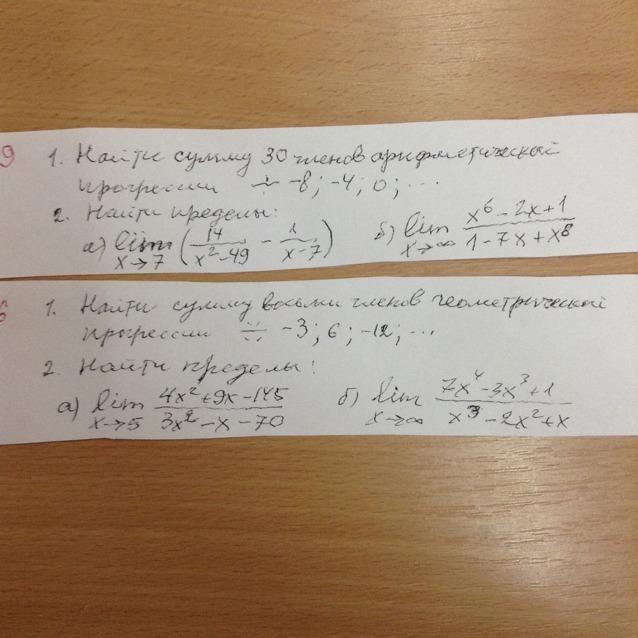 9 1. Найти сумму 30 членов арифметической
прогрессии ÷ -8; -4; 0; ...
2. Найти пределы:
а) lim x→7 (14/(x²-49) - 1/(x-7)) б) lim x→∞ (x⁶-2x+1)/(1-7x+x⁸)
1. Найти сумму восьми членов геометрической
прогрессии ∺ -3; 6; -12; ...
2. Найти пределы:
а) lim x→5 (4x²+9x-145)/(3x²-x-70) б) lim x→∞ (7x⁴-3x³+1)/(x³-2x²+x)